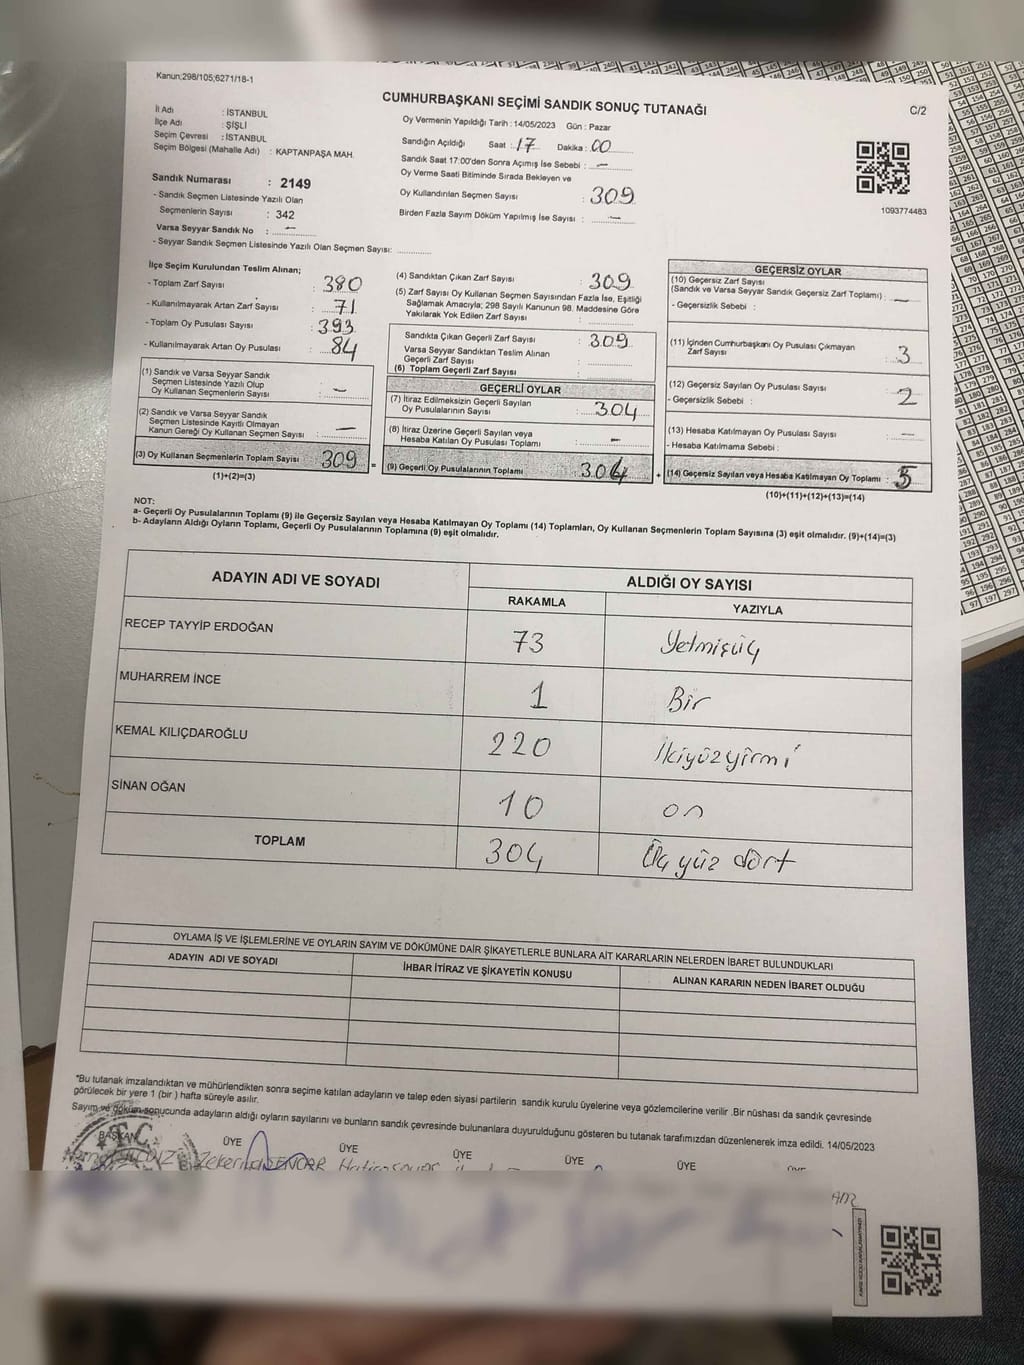 Kanun:298/105;6271/18-1
CUMHURBAŞKANI SEÇİMİ SANDIK SONUÇ TUTANAĞI
C/2
İl Adı : İSTANBUL
İlçe Adı : ŞİŞLİ
Seçim Çevresi : İSTANBUL
Seçim Bölgesi (Mahalle Adı) : KAPTANPAŞA MAH.
Sandık Numarası : 2149
- Sandık Seçmen Listesinde Yazılı Olan
Seçmenlerin Sayısı : 342
Varsa Seyyar Sandık No : —
- Seyyar Sandık Seçmen Listesinde Yazılı Olan Seçmen Sayısı:
Oy Vermenin Yapıldığı Tarih : 14/05/2023 Gün : Pazar
Sandığın Açıldığı Saat : 17 Dakika : 00
Sandık Saat 17:00'den Sonra Açımış İse Sebebi : —
Oy Verme Saati Bitiminde Sırada Bekleyen ve
Oy Kullandırılan Seçmen Sayısı : 309
Birden Fazla Sayım Döküm Yapılmış İse Sayısı : —
1093774463
İlçe Seçim Kurulundan Teslim Alınan;
- Toplam Zarf Sayısı : 380
- Kullanılmayarak Artan Zarf Sayısı : 71
- Toplam Oy Pusulası Sayısı : 393
- Kullanılmayarak Artan Oy Pusulası : 84
(1) Sandık ve Varsa Seyyar Sandık
Seçmen Listesinde Yazılı Olup
Oy Kullanan Seçmenlerin Sayısı : —
(2) Sandık ve Varsa Seyyar Sandık
Seçmen Listesinde Kayıtlı Olmayan
Kanun Gereği Oy Kullanan Seçmen Sayısı : —
(3) Oy Kullanan Seçmenlerin Toplam Sayısı 309 =
(1)+(2)=(3)
(4) Sandıktan Çıkan Zarf Sayısı : 309
(5) Zarf Sayısı Oy Kullanan Seçmen Sayısından Fazla İse, Eşitliği
Sağlamak Amacıyla; 298 Sayılı Kanunun 98. Maddesine Göre
Yakılarak Yok Edilen Zarf Sayısı :
Sandıkta Çıkan Geçerli Zarf Sayısı : 309
Varsa Seyyar Sandıktan Teslim Alınan
Geçerli Zarf Sayısı :
(6) Toplam Geçerli Zarf Sayısı :
GEÇERLİ OYLAR
(7) İtiraz Edilmeksizin Geçerli Sayılan
Oy Pusulalarının Sayısı : 304
(8) İtiraz Üzerine Geçerli Sayılan veya
Hesaba Katılan Oy Pusulası Toplamı : —
(9) Geçerli Oy Pusulalarının Toplamı : 304 +
GEÇERSİZ OYLAR
(10) Geçersiz Zarf Sayısı
(Sandık ve Varsa Seyyar Sandık Geçersiz Zarf Toplamı) : —
- Geçersizlik Sebebi :
(11) İçinden Cumhurbaşkanı Oy Pusulası Çıkmayan
Zarf Sayısı : 3
(12) Geçersiz Sayılan Oy Pusulası Sayısı : 2
- Geçersizlik Sebebi :
(13) Hesaba Katılmayan Oy Pusulası Sayısı : —
- Hesaba Katılmama Sebebi :
(14) Geçersiz Sayılan veya Hesaba Katılmayan Oy Toplamı : 5
(10)+(11)+(12)+(13)=(14)
NOT:
a- Geçerli Oy Pusulalarının Toplamı (9) ile Geçersiz Sayılan veya Hesaba Katılmayan Oy Toplamı (14) Toplamları, Oy Kullanan Seçmenlerin Toplam Sayısına (3) eşit olmalıdır. (9)+(14)=(3)
b- Adayların Aldığı Oyların Toplamı, Geçerli Oy Pusulalarının Toplamına (9) eşit olmalıdır.
ADAYIN ADI VE SOYADI
ALDIĞI OY SAYISI
RAKAMLA YAZIYLA
RECEP TAYYİP ERDOĞAN 73 Yetmişüç
MUHARREM İNCE 1 Bir
KEMAL KILIÇDAROĞLU 220 İkiyüzyirmi
SİNAN OĞAN 10 on
TOPLAM 304 Üçyüz dört
OYLAMA İŞ VE İŞLEMLERİNE VE OYLARIN SAYIM VE DÖKÜMÜNE DAİR ŞİKAYETLERLE BUNLARA AİT KARARLARIN NELERDEN İBARET BULUNDUKLARI
ADAYIN ADI VE SOYADI İHBAR İTİRAZ VE ŞİKAYETİN KONUSU ALINAN KARARIN NEDEN İBARET OLDUĞU
*Bu tutanak imzalandıktan ve mühürlendikten sonra seçime katılan adayların ve talep eden siyasi partilerin sandık kurulu üyelerine veya gözlemcilerine verilir .Bir nüshası da sandık çevresinde
görülecek bir yere 1 (bir ) hafta süreyle asılır.
Sayım ve döküm sonucunda adayların aldığı oyların sayılarını ve bunların sandık çevresinde bulunanlara duyurulduğunu gösteren bu tutanak tarafımızdan düzenlenerek imza edildi. 14/05/2023
BAŞKAN ÜYE ÜYE ÜYE ÜYE ÜYE
T.C.